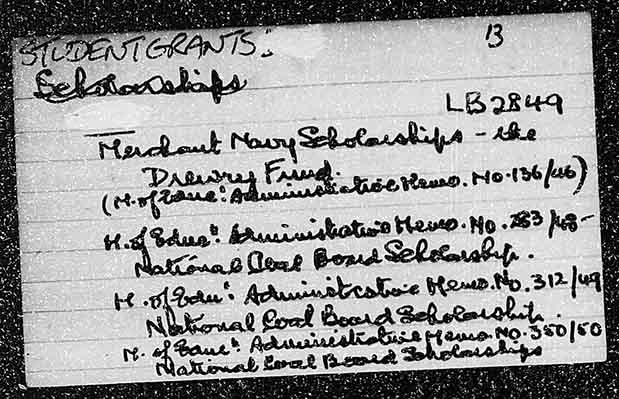 13
STUDENT GRANTS:
Scholarships
LB 2849
Merchant Navy Scholarships - the
Drewry Fund.
(M. of Educn: Administrative Memo. No. 136/46)
M. of Educn: Administrative Memo. No. 283/48 -
National Coal Board Scholarship.
M. of Educn: Administrative Memo. No. 312/49
National Coal Board Scholarship.
M. of Educn: Administrative Memo. No. 350/50
National Coal Board Scholarships